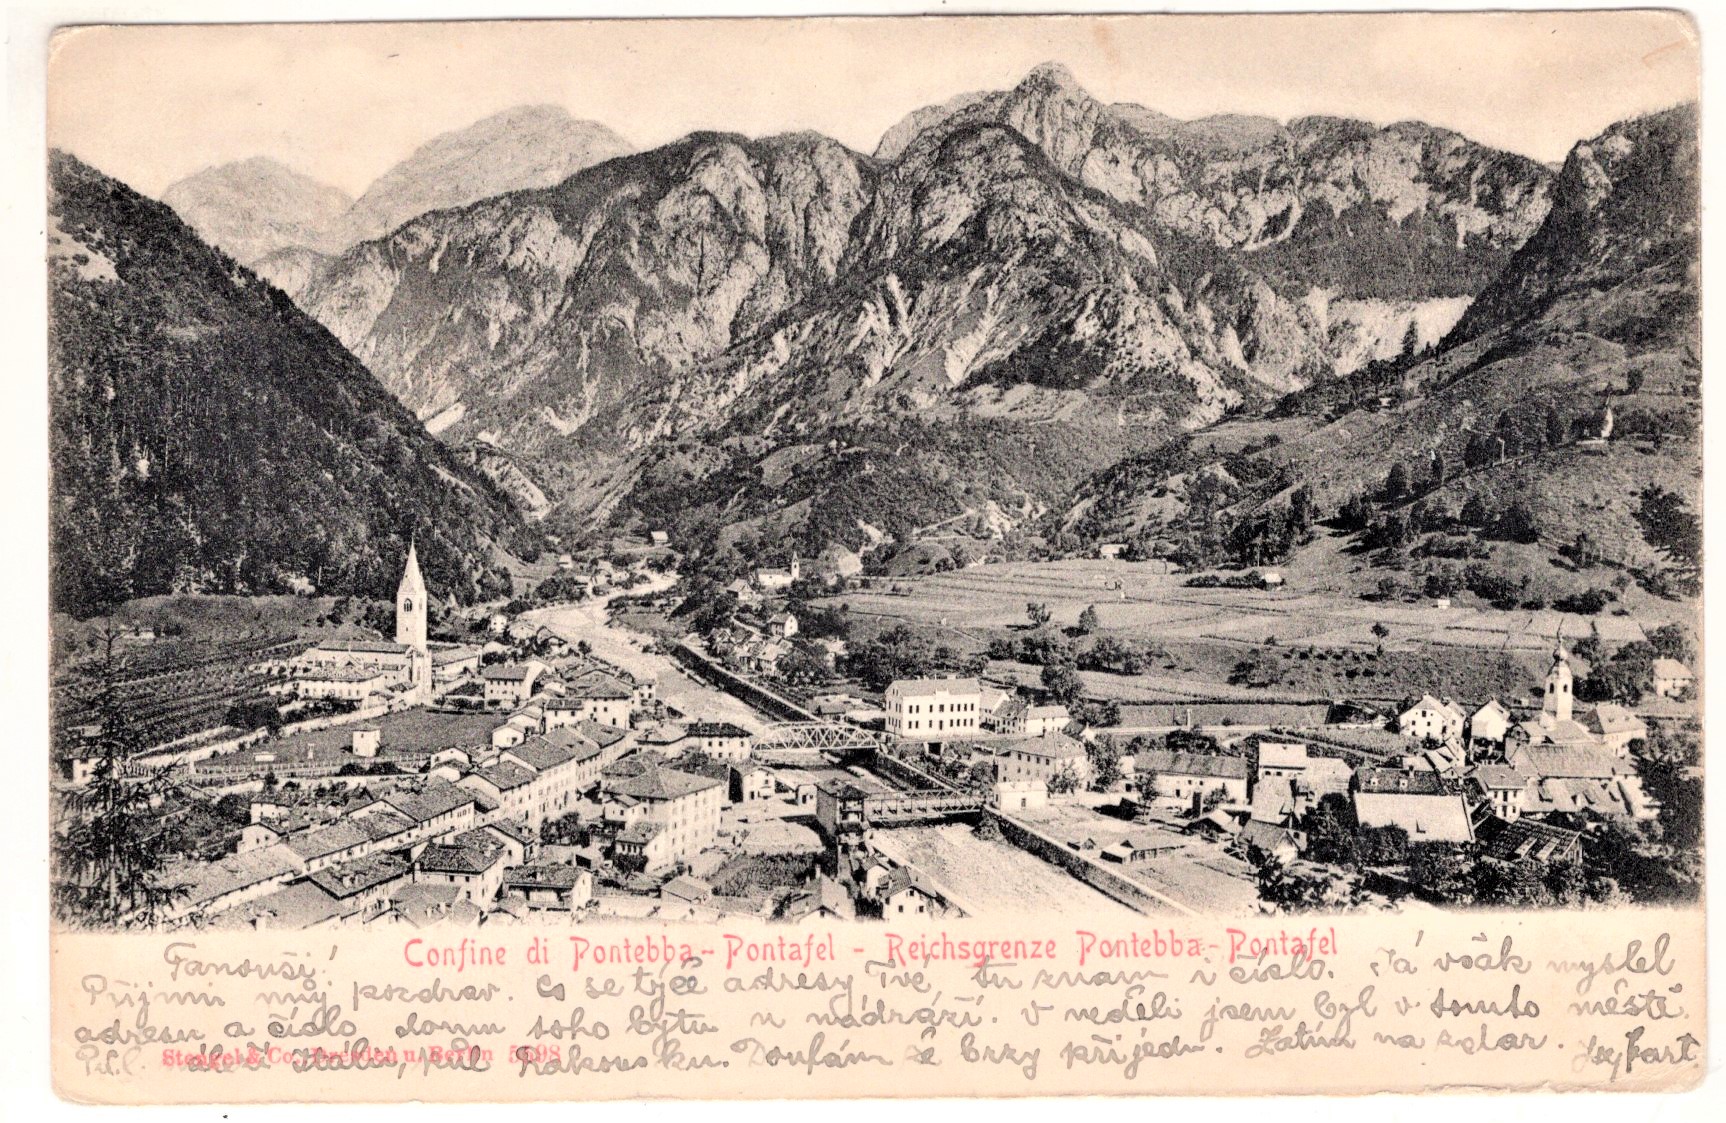 Confine di Pontebba-Pontafel - Reichsgrenze Pontebba-Pontafel
Fanouši!
Přijmi můj pozdrav. Co se týče adresy Tvé, tu znám i číslo. Já však myslel
adresu a číslo domu toho bytu u nádráží. V neděli jsem byl v tomto městě.
půl Itálie, půl Rakouska. Doufám že brzy přijedu. Zatím na zdar.
Stengel & Co., Dresden u. Berlin